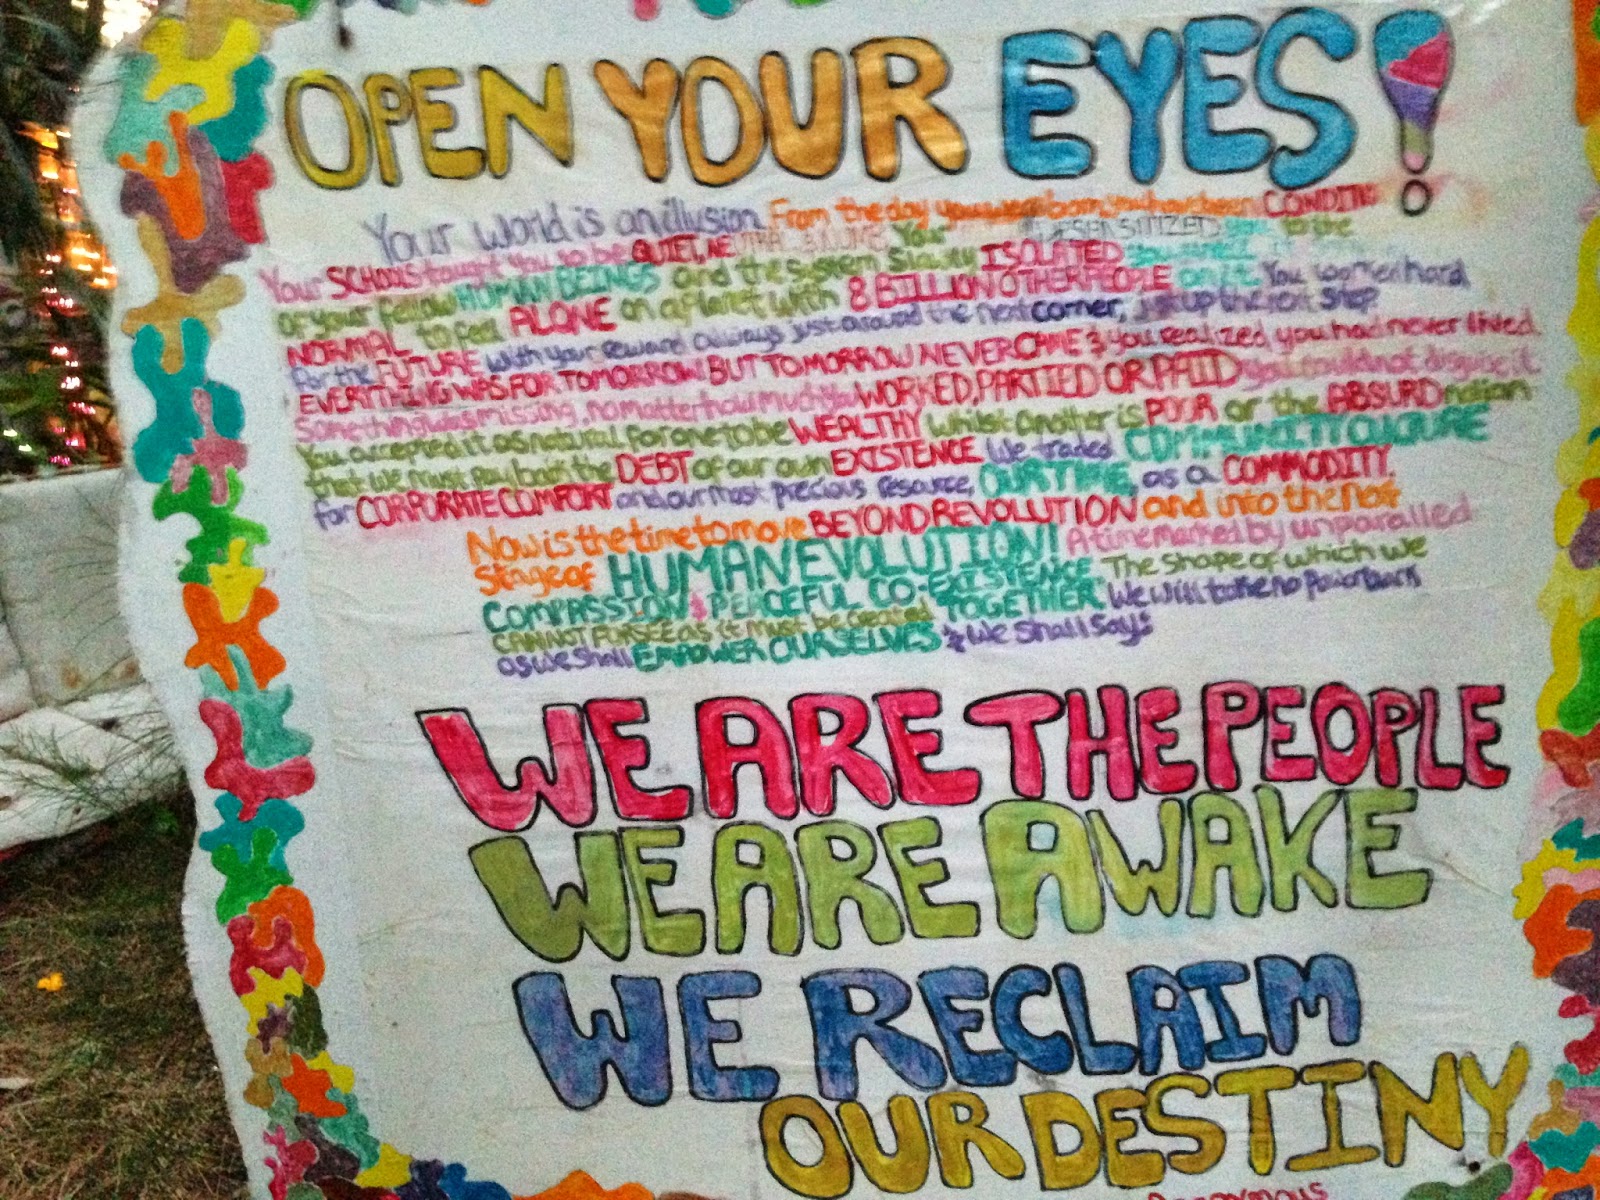 OPEN YOUR EYES!
Your world is an illusion. From the day you were born you have been CONDITIO
Your SCHOOLS taught you to be QUIET, NEUTRAL & NUMB. You DESENSITIZED to the
of your fellow HUMAN BEINGS and the system slowly ISOLATED
NORMAL to feel ALONE on a planet with 8 BILLION OTHER PEOPLE on it. You worked hard
for the FUTURE with your reward always just around the next corner, just up the next step.
EVERYTHING WAS FOR TOMORROW! BUT TOMORROW NEVER CAME & you realized you had never lived.
Something was missing, no matter how much you WORKED, PARTIED OR PAID you could not disguise it
You accepted it as natural for one to be WEALTHY whilst another is POOR or the ABSURD notion
that we must pay back the DEBT of our own EXISTENCE. We traded COMMUNITY CULTURE
for CORPORATE COMFORT and our most precious resource, OUR TIME, as a COMMODITY.
Now is the time to move BEYOND REVOLUTION and into the next
stage of HUMAN EVOLUTION! A time marked by unparalled
COMPASSION & PEACEFUL CO-EXISTENCE. The shape of which we
CANNOT FORSEE as it must be created TOGETHER. We will take no power back
as we shall EMPOWER OURSELVES & we shall say:
WE ARE THE PEOPLE
WE ARE AWAKE
WE RECLAIM
OUR DESTINY
Anonymous